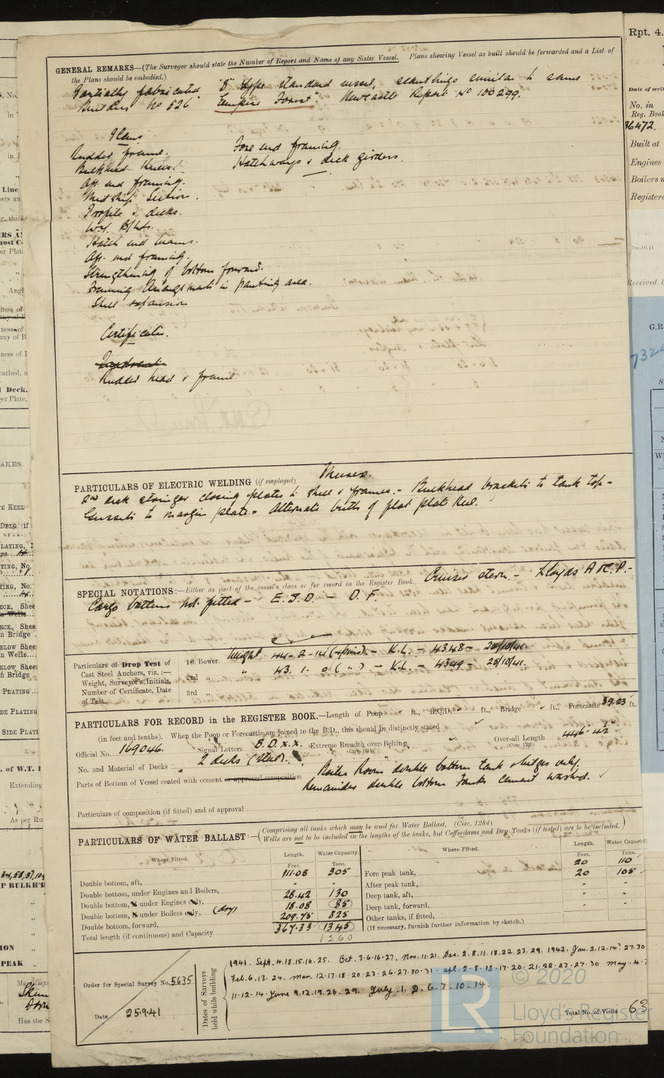 GENERAL REMARKS—(The Surveyor should state the Number of Report and Name of any Sister Vessel. Plans showing Vessel as built should be forwarded and a List of
the Plans should be embodied.)
Partially fabricated "B" type standard vessel, scantlings similar to same
Builders No 526 "Empire Forest". Newcastle Report No 100299.
Plans
Rudder frame. Fore end framing.
Bulkhead Recess. Hatchways & deck girders.
Aft end framing.
Midship Section.
Profile & decks.
W.T. Bhds.
Hatch end beams.
Aft end framing.
Strengthening of bottom forward.
Framing Arrangement in panting area.
Shell expansion
Certificate.
Rudder head & frame
PARTICULARS OF ELECTRIC WELDING (if employed)
2nd deck stringer closing plates to shell & frames. - Bulkhead brackets to tank top -
Gussets to margin plate. Alternate butts of flat plate keel.
SPECIAL NOTATIONS:—Either as part of the vessel's class or for record in the Register Book. Cruiser stern - Lloyds A & C.P. -
Cargo battens not fitted - E.S.D. - D.F.
Particulars of Drop Test of
Cast Steel Anchors, viz. :—
Weight, Surveyor's Initials,
Number of Certificate, Date
of Test.
1st Bower. Weight 44-2-14 - K.L. - 4348 - 20/10/41.
2nd " 43. 1. 0 ( " ) - K.L. - 4349 - 20/10/41.
3rd "
PARTICULARS FOR RECORD in the REGISTER BOOK.—Length of Poop ft., R.Q.D. ft., Bridge ft., Forecastle 39.23 ft.
(in feet and tenths). When the Poop or Forecastle are joined to the B.D., this should be distinctly stated
Official No. 169046. Signal Letters B.D.X.X. Extreme Breadth over Belting Over-all Length 446.42
No. and Material of Decks 2 decks (steel).
Parts of Bottom of Vessel coated with cement or approved composition Boiler Room double bottom tank & bilges only.
Remainder double bottom tanks cement washed.
Particulars of composition (if fitted) and of approval
PARTICULARS OF WATER BALLAST:— (Comprising all tanks which may be used for Water Ballast. (Circ. 1284)
Wells are not to be included in the lengths of the tanks, but Cofferdams and Dry Tanks (if tested) are to be included.)
Where Fitted. Length. Feet. Water Capacity Tons. Where Fitted. Length. Feet. Water Capacity Tons.
Double bottom, aft, 111.08 305 Fore peak tank, 20 110
Double bottom, under Engines and Boilers, - - After peak tank, 20 105
Double bottom, under Engines only, 28.42 130 Deep tank, aft, - -
Double bottom, under Boilers only, (dry) 18.08 (85) Deep tank, forward, - -
Double bottom, forward, 209.75 825 Other tanks, if fitted, - -
Total length (if continuous) and Capacity 367.33 1345 (If necessary, furnish further information by sketch.)
1260
Order for Special Survey No. 5635
Date 25.9.41
Dates of Surveys held while building
1941. Sept. 4.18.15.16.25. Oct. 3.6.16.27. Nov. 11.21. Dec. 2.8.11.18.22.23.29. 1942. Jan. 2.12.14.27.30
Feb. 6.13.24. Mar. 12.17.18.20.23.26.27.30.31. Apl. 2.8.13.17.20.21.25.27.27.30 May. 4.
11.12.14. June 9.12.19.26.29. July. 1.2.6.7.10.14.
Total No. of Visits 63
© 2020
LR
Lloyd's Register
Foundation
Rpt. 4.
Date of writ
No. in
Reg. Book
36472.
Built at
Engines
Boilers
Registere